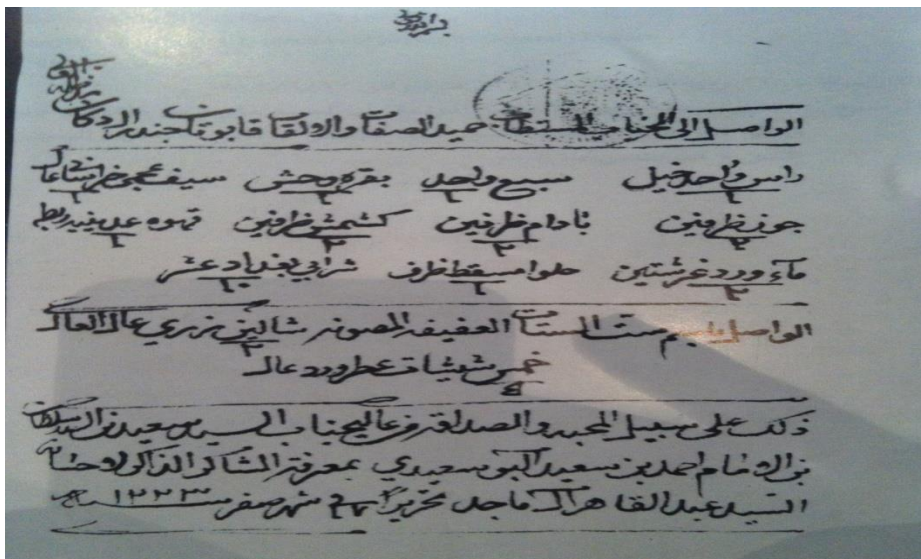 الواصل الى الجناب المستطاب حميد الصفات والالقاب قابوقات جندر الوكات
راس واحد خيل سبع واحد بقره وحشي سيف عجمي خراساني عال
١ ١ ١ ١
جوز ظرفين بادام ظرفين كشمش ظرفين قهوه عدنيه ربطه
٢ ٢ ٢ ١
ماء ورد غرشتين حلوا مسقط ظرف شرابي بغداد عشر
٢ ١ ١٠
الواصل باسم ست الستات العفيفه المصونه شالين زري عال العال
٢
خمس شيشات عطر ورد عال
ذلك على سبيل المحبه والصداقه من عاليجناب السيد سعيد بن السيد سلطان
بن الامام احمد بن سعيد البوسعيدي بمعرفة الشاكر الذاكر لاحسانه
السيد عبد القاهر ال ماجد تحريرا في شهر صفر سنة ١٢٢٣